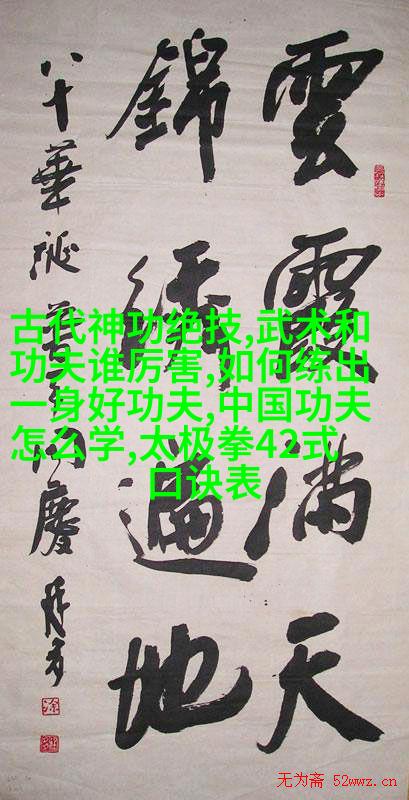 雲霞滿天
錦繡遍地
八十華誕普天同慶
古代神功绝技,武术和
功夫谁厉害,如何练出
一身好功夫,中国功夫
怎么学,太极拳42式
口诀表
无为斋 52wwz.cn